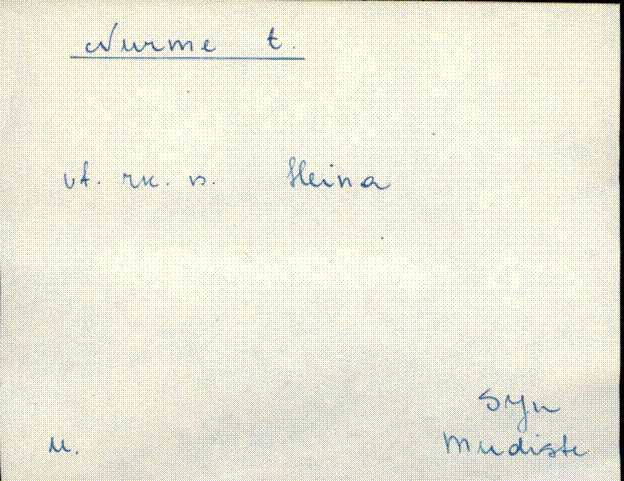 Nurme t.
vt. rk. n. Heina
SJn
M. Mudiste